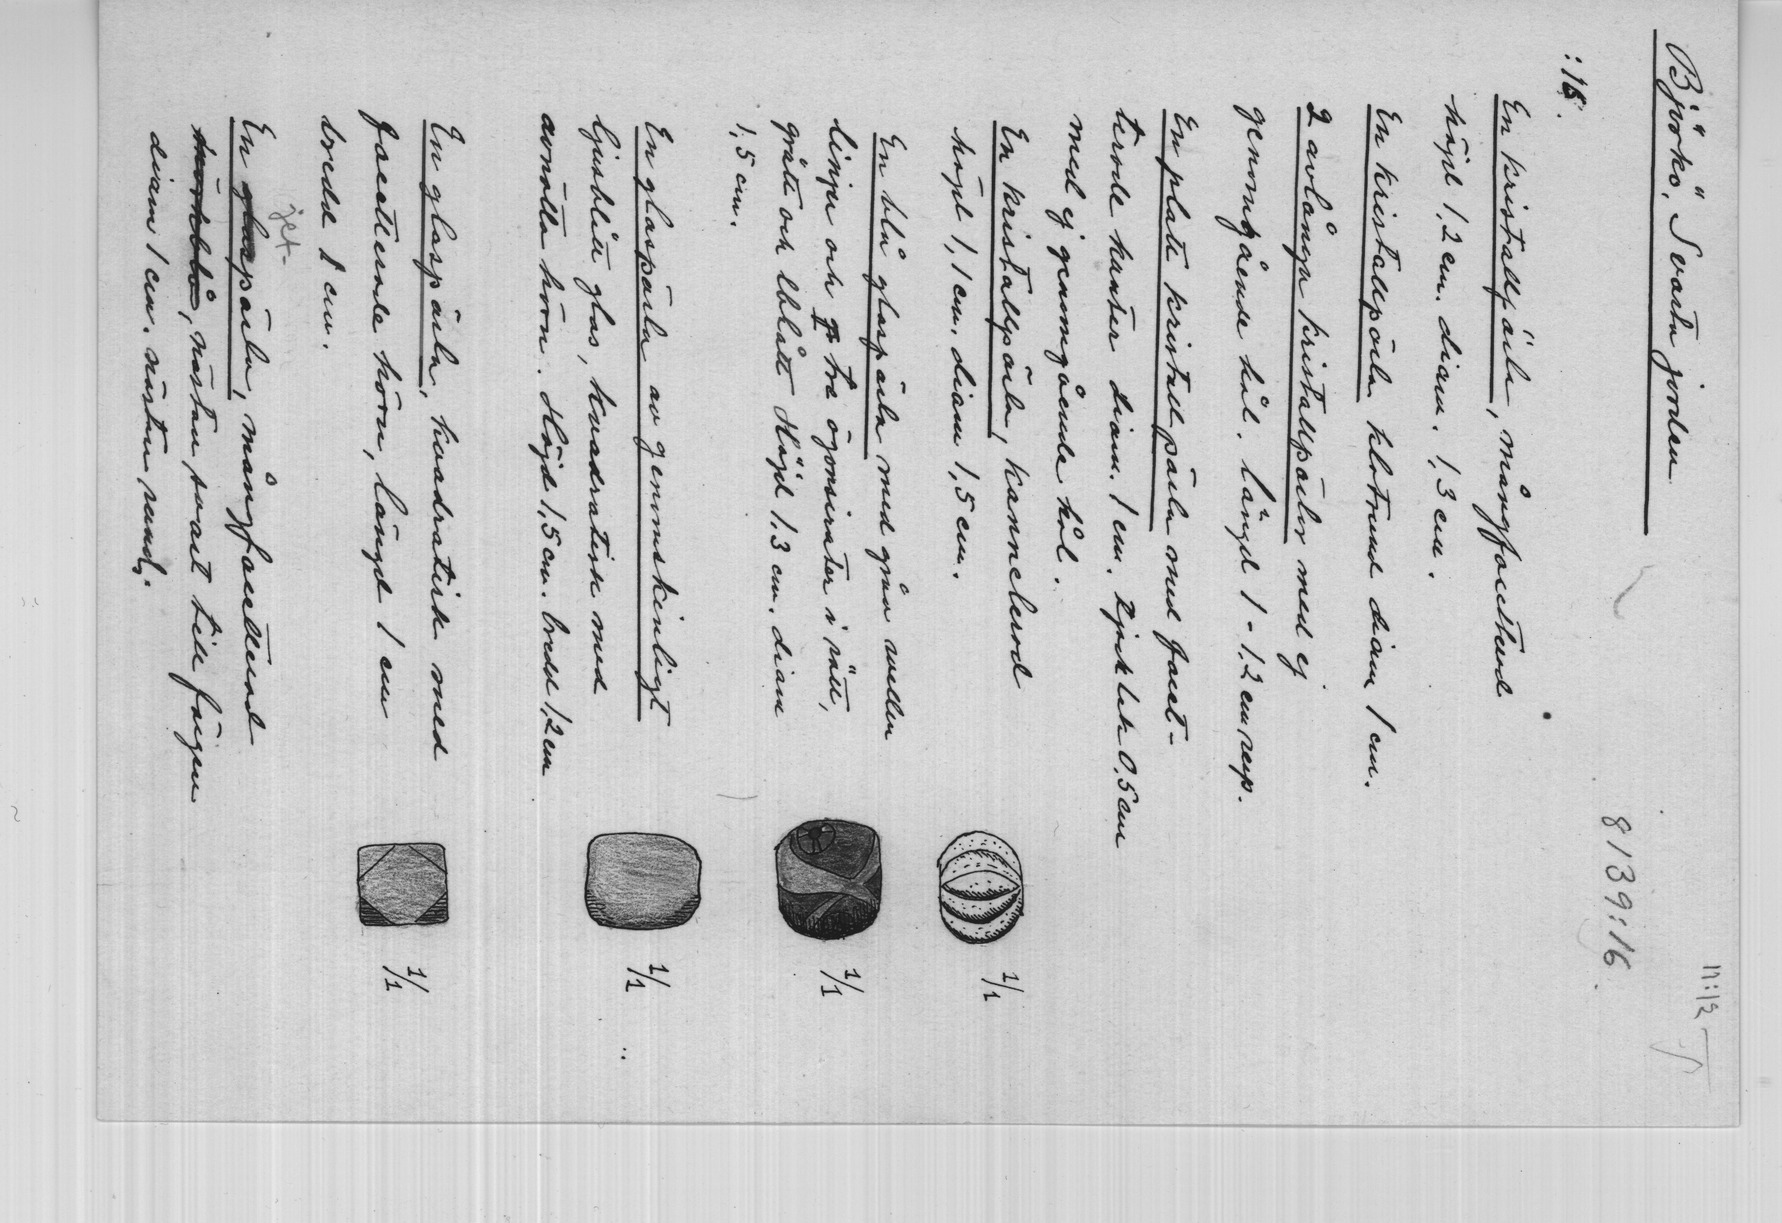 11:12
Björkö, Svarta jorden
8139:16.
:16.
En kristallpärla, mångfacetterad
höjd 1,2 cm. diam. 1,3 cm.
En kristallpärla klotrund diam 1 cm.
2 avlånga kristallpärlor med ej
genomgående hål. längd 1 - 1,2 cm resp.
En platt kristallpärla med facet-
terade kanter diam. 1 cm. tjocklek 0,5 cm
med ej genomgående hål.
En kristallpärla, kannelerad
höjd 1,1 cm. diam 1,5 cm.
1/1
En blå glaspärla med grön mellan
linjer och tre ögonsirater i rött,
grått och blått Höjd 1,3 cm. diam
1,5 cm.
1/1
En glaspärla av genomskinligt
ljusblått glas, kvadratisk med
avnötta hörn. Höjd 1,5 cm. bredd 1,2 cm
1/1
En glaspärla, kvadratisk med
facetterade hörn, längd 1 cm
bredd 1 cm.
1/1
jet-
En glaspärla, mångfacetterad
mörkblå, nästan svart till färgen
diam 1 cm. nästan rund.